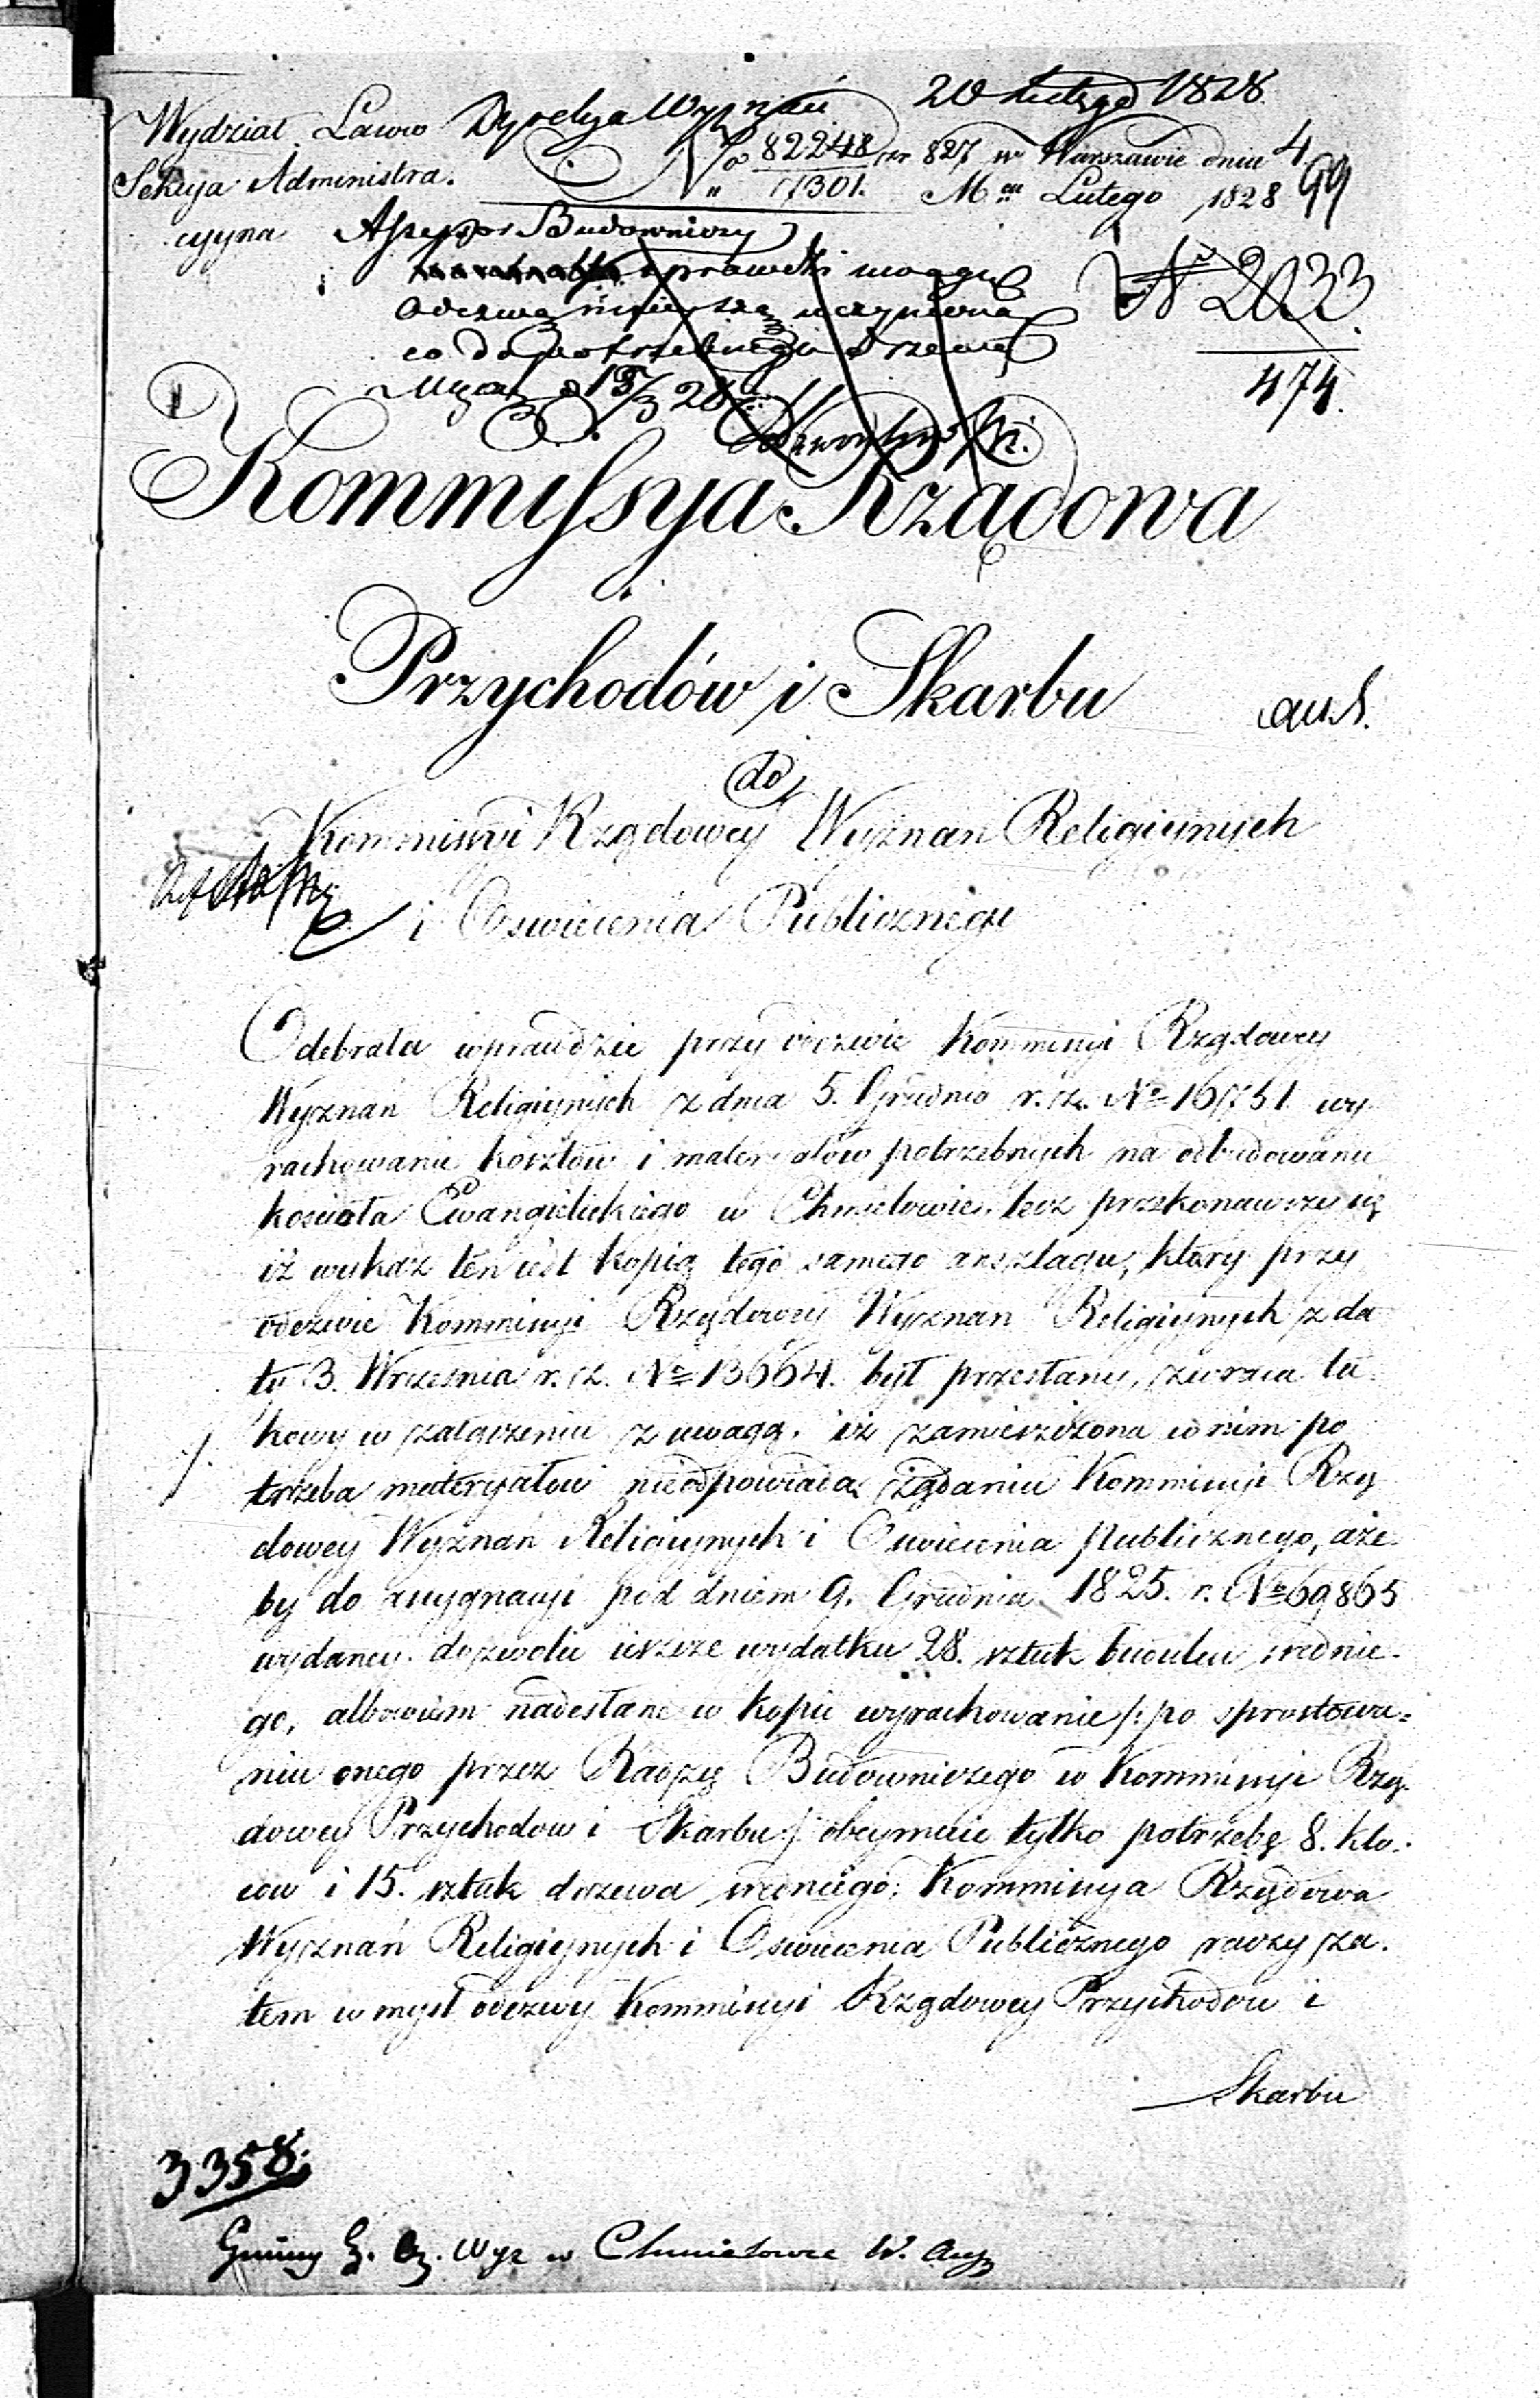 20 Lutego 1828
Wydział Lasów Dyrekcya Wyznań
No 82248 ex 827 w Warszawie dnia 4
Sekcya Administra.
17301. Mca Lutego 1828 99
cyyna Assessor Budowniczy
uwagę No 2033
odezwą ninieyszą uczynioną
co do potrzebnego drzewa
474.
Kommissya Rządowa
Przychodów i Skarbu
do
Kommissyi Rządowey Wyznań Religiynych
i Oswiecenia Publicznego
Odebrała wprawdzie przy odezwie Kommissyi Rządowey
Wyznań Religiynych z dnia 5. Grudnia r. z. No 16751 wy
rachowanie kosztów i materyałów potrzebnych na odbudowanie
kościoła Ewangielickiego w Chmielowie, lecz przekonawszy się
iż wykaz ten iest kopią tego samego anszlagu, który przy
odezwie Kommissyi Rządowey Wyznań Religiynych z da
ty 3. Września r. z. No 13664. był przesłany, zwraca ta
kowy w załączeniu z uwagą, iż zamieszczona w nim po
trzeba materyałów nieodpowiada żądaniu Kommissyi Rzą
dowey Wyznań Religiynych i Oswiecenia Publicznego, aże
by do assygnacyi pod dniem 9. Grudnia 1825. r. No 69865
wydaney. dozwolić ieszcze wydatku 28. sztuk budulcu srednie.
go, albowiem nadesłane w kopii wyrachowanie /: po sprostowa=
niu onego przez Radzcę Budowniczego w Kommissyi Rzą.
dowey Przychodow i Skarbu :/ obeymuie tylko potrzebę 8. klo.
ców i 15. sztuk drzewa sredniego; Kommissya Rządowa
Wyznań Religiynych i Oswiecenia Publicznego raczy za.
tem w myśl odezwy Kommissyi Rządowey Przychodow i
Skarbu
3358.
Gminy Wyz w Chmielowie W. Aug